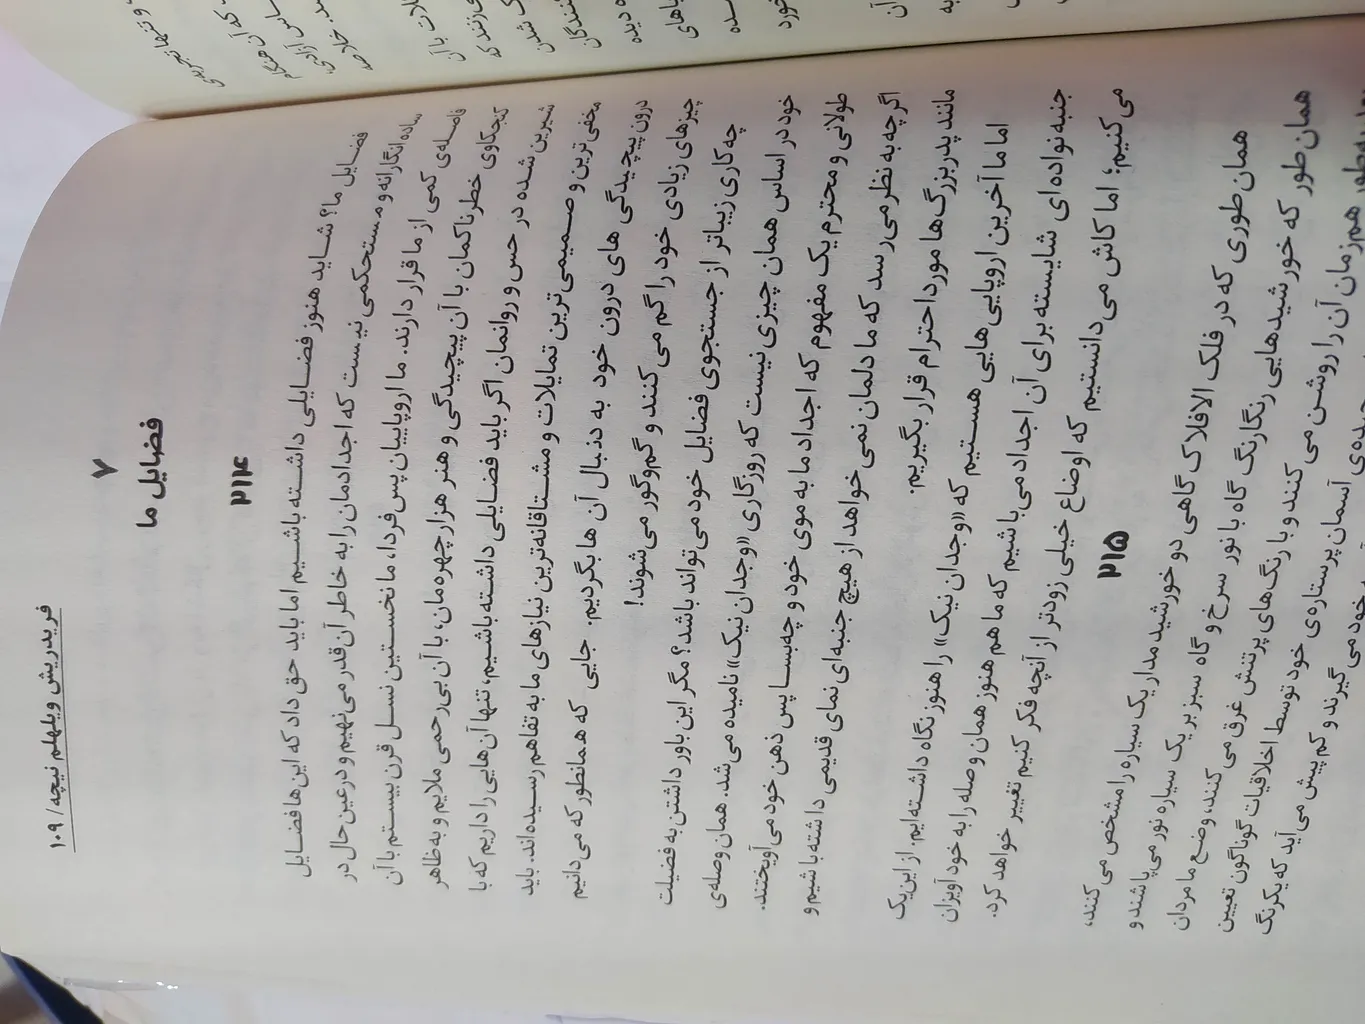 فریدریش ویلهلم نیچه/ ۱۰۹
۷
فضایل ما
۲۱۴
فضایل ما؟ شاید هنوز فضایلی داشته باشیم اما باید حق داد که این‌ها فضایل
ساده‌انگارانه و مستحکمی نیست که اجدادمان را به خاطر آن قدر می‌نهیم و در عین حال در
فاصله‌ی کمی از ما قرار دارند. ما اروپاییان پس فردا، ما نخستین نسل قرن بیستم با آن
کنجکاوی خطرناکمان با آن پیچیدگی و هنر هزار چهره‌مان، با آن بی‌رحمی ملایم و به ظاهر
شیرین شده در حس و روانمان اگر باید فضایلی داشته باشیم، تنها آن‌هایی را داریم که با
مخفی‌ترین و صمیمی‌ترین تمایلات و مشتاقانه‌ترین نیازهای ما به تفاهم رسیده‌اند. باید
درون پیچیدگی های درون خود به دنبال آن ها بگردیم. جایی که همانطور که می‌دانیم
چیزهای زیادی خود را گم می‌کنند و گم‌وگور می‌شوند!
چه کاری زیباتر از جستجوی فضایل خود می‌تواند باشد؟ مگر این باور داشتن به فضیلت
خود در اساس همان چیزی نیست که روزگاری «وجدان نیک» نامیده می‌شد. همان وصله‌ی
طولانی و محترم یک مفهوم که اجداد ما به موی خود و چه‌بسا پس ذهن خود می‌آویختند.
اگر چه به نظر می‌رسد که ما دلمان نمی خواهد از هیچ جنبه‌ای نمای قدیمی داشته باشیم و
مانند پدربزرگ‌ها مورد احترام قرار بگیریم.
اما ما آخرین اروپایی هایی هستیم که «وجدان نیک» را هنوز نگاه داشته‌ایم. از این یک
جنبه نواده‌ای شایسته برای آن اجداد می‌باشیم که ما هم هنوز همان وصله را به خود آویزان
می‌کنیم؛ اما کاش می‌دانستیم که اوضاع خیلی زودتر از آنچه فکر کنیم تغییر خواهد کرد.
۲۱۵
همان طوری که در فلک الافلاک گاهی دو خورشید مدار یک سیاره را مشخص می کنند،
همان طور که خورشیدهایی رنگارنگ گاه با نور سرخ و گاه سبز بر یک سیاره نور می‌پاشند و
هم‌زمان آن را روشن می کنند و با رنگ‌های پرتنش غرق می کنند، وضع ما مردان
آسمان پرستاره‌ی خود توسط اخلاقیات گوناگون تعیین
خود می گیرند و کم پیش می‌آید که یکرنگ